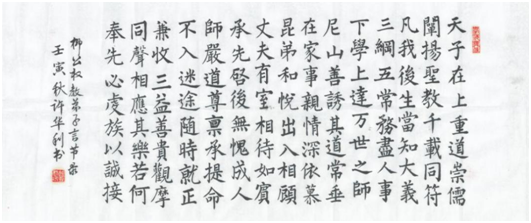 天子在上重道崇儒
闡揚聖教千載同符
凡我後生當知大義
三綱五常務盡人事
下學上達萬世之師
尼山善誘其道常垂
在家事親情深依慕
昆弟和悅出入相顧
丈夫有室相待如賓
承先啓後無愧成人
師嚴道尊稟承提命
不入迷途隨時就正
兼收三益善貴觀摩
同聲相應其樂若何
奉先必虔族以誠接
柳公权教弟子言节录
壬寅秋许华利书